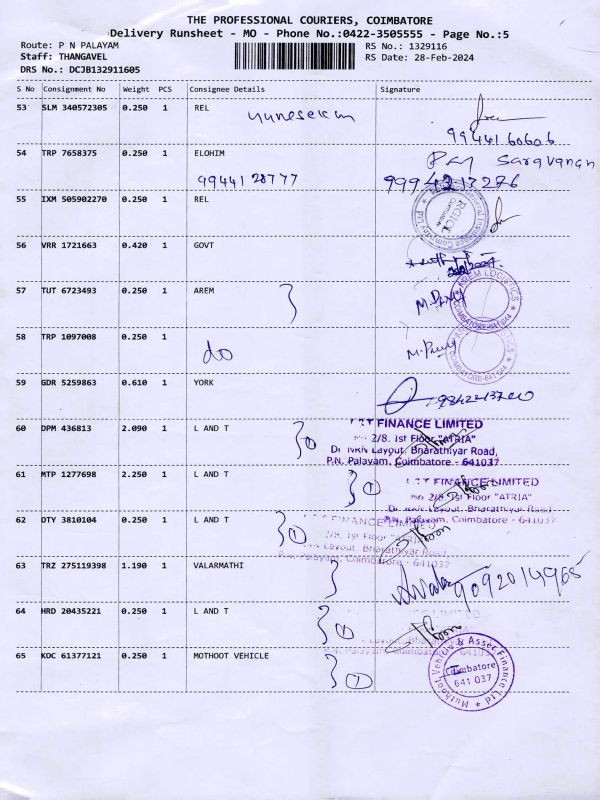 THE PROFESSIONAL COURIERS, COIMBATORE
Delivery Runsheet - MO - Phone No.:0422-3505555 - Page No.:5
Route: P N PALAYAM
RS No.: 1329116
Staff: THANGAVEL
RS Date: 28-Feb-2024
DRS No.: DCJB132911605
S No Consignment No Weight PCS Consignee Details Signature
53 SLM 340572305 0.250 1 REL
9944160606
54 TRP 7658375 0.250 1 ELOHIM
Saravanan
9944128777
9994217276
55 IXM 505902270 0.250 1 REL
RGICL
56 VRR 1721663 0.420 1 GOVT
57 TUT 6723493 0.250 1 AREM
AREM LOGISTICS
COIMBATORE-641 044
58 TRP 1097008 0.250 1
do
COIMBATORE-641 044
59 GDR 5259863 0.610 1 YORK
60 DPM 436813 2.090 1 L AND T
1
FINANCE LIMITED
2/8, Ist Floor "ATRIA"
Layout, Bharathiyar Road,
P.N. Palayam, Coimbatore - 641037
61 MTP 1277698 2.250 1 L AND T
1
FINANCE LIMITED
2/8, Ist Floor "ATRIA"
Layout, Bharathiyar Road,
Palayam, Coimbatore - 641 037
62 OTY 3810104 0.250 1 L AND T
1
FINANCE LIMITED
2/8, Ist Floor "ATRIA"
Layout, Bharathiyar Road,
Palayam, Coimbatore - 641037
63 TRZ 275119398 1.190 1 VALARMATHI
9092014965
64 HRD 20435221 0.250 1 L AND T
1
P.N. Palayam, Coimbatore
65 KOC 61377121 0.250 1 MOTHOOT VEHICLE
1
Muthoot Vehicle & Asset Finance Ltd
Coimbatore
641 037